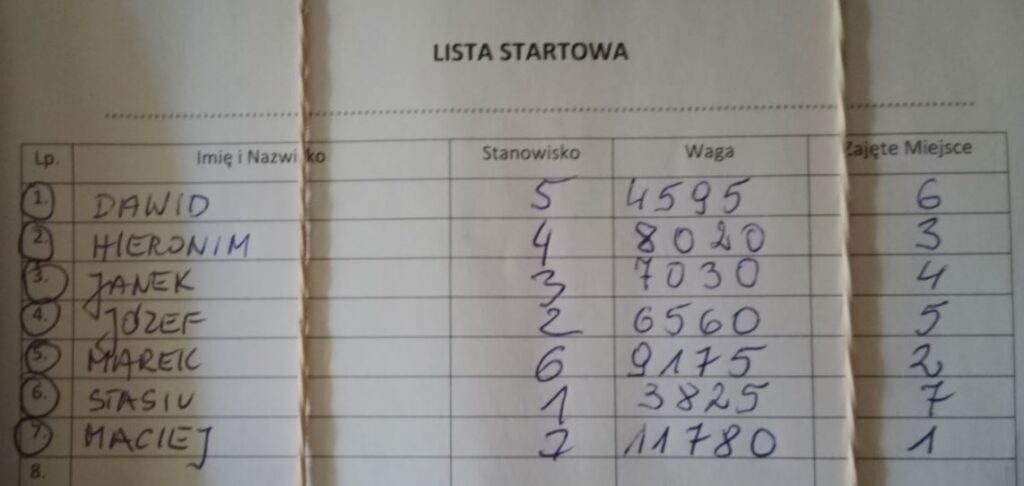 LISTA STARTOWA
Lp. Imię i Nazwisko Stanowisko Waga Zajęte Miejsce
1. DAWID 5 4595 6
2. HIERONIM 4 8020 3
3. JANEK 3 7030 4
4. JÓZEF 2 6560 5
5. MAREK 6 9175 2
6. STASIU 1 3825 7
7. MACIEJ 7 11780 1
8.